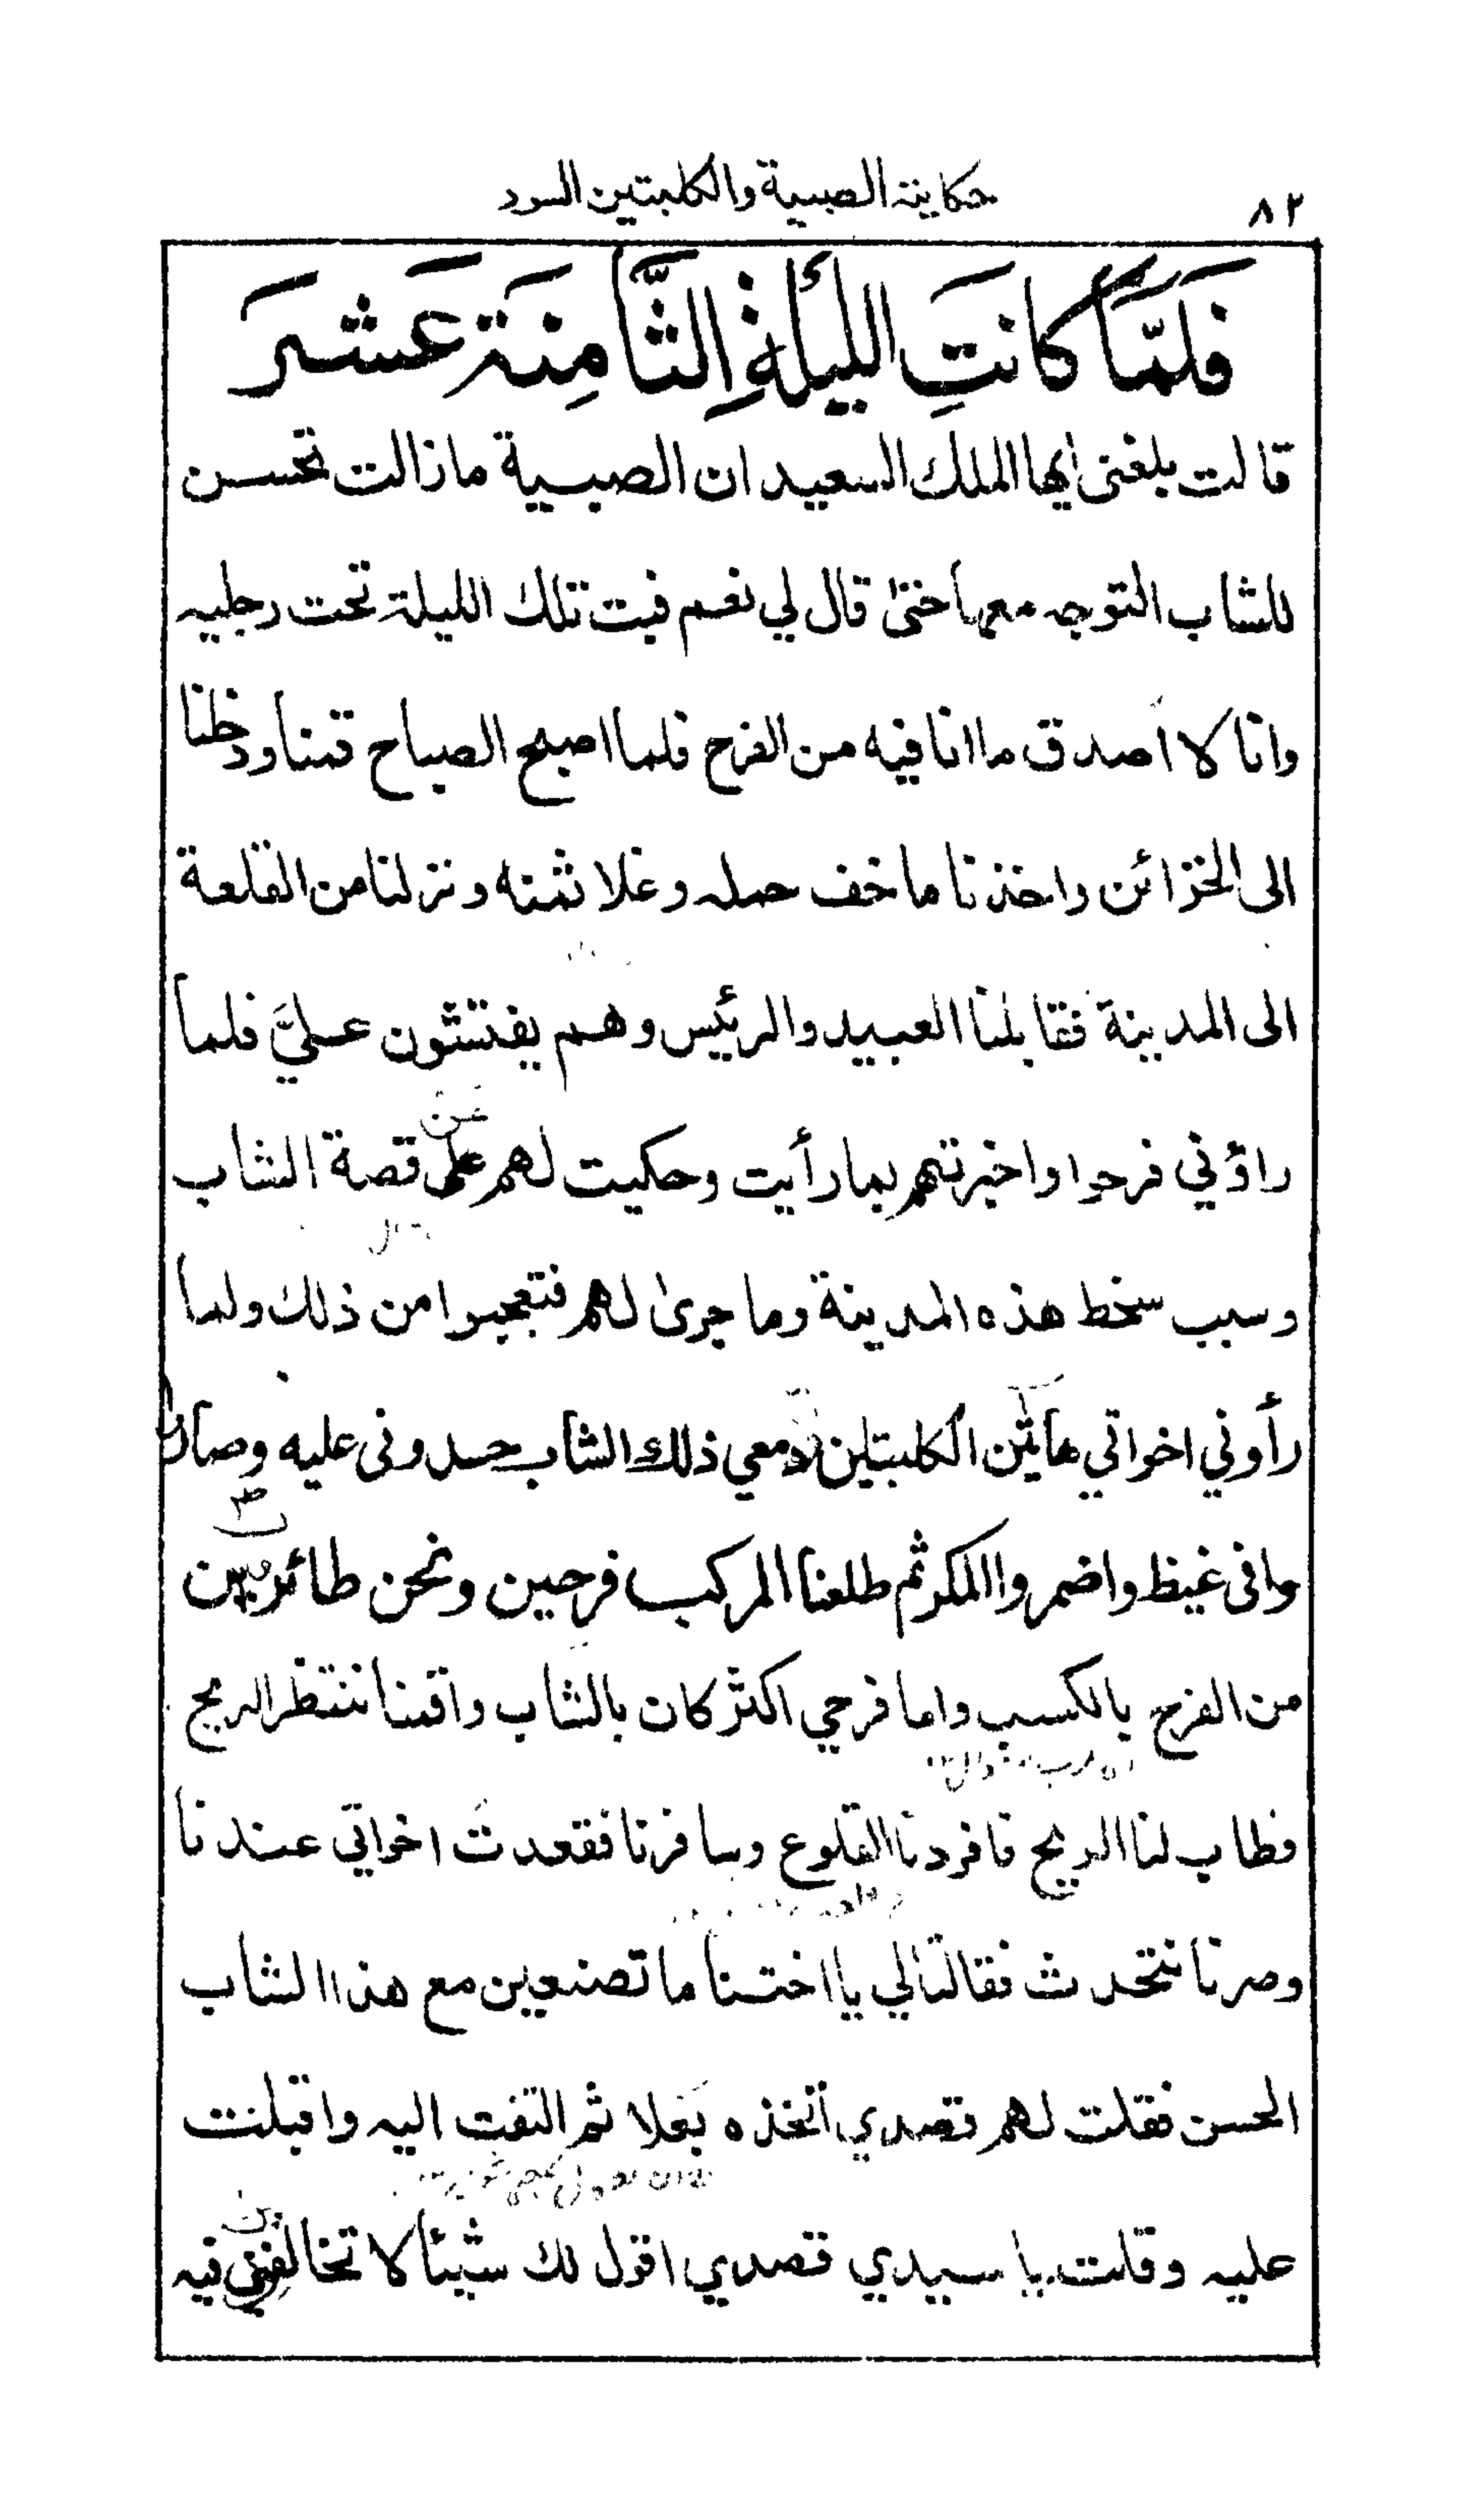 ٨٢
حكاية الصبية والكلبتين السود
فَلَمَّا كَانَتِ اللَّيْلَةِ الثَّامِنَةَ عَشَرَ
قالت بلغني ايها الملك السعيد ان الصبية مازالت تحسن
للشاب التوجه معها حتى قال لي نعم فبت تلك الليلة تحت رجليه
وانا لا اصدق ما انا فيه من الفرح فلما اصبح الصباح قمنا ودخلنا
الى الخزائن واخذنا ما خف حمله وغلا ثمنه ونزلنا من القلعة
الى المدينة فقابلنا العبيد والرئيس وهم يفتشون عليَّ فلما
راؤني فرحوا واخبرتهم بما رأيت وحكيت لهم قصة الشاب
وسبب سخط هذه المدينة وما جرى لهم فتعجبوا من ذلك ولما
رأوني اخواتي هاتين الكلبتين ومعي ذلك الشاب حسدوني عليه وصاروا
في غيظ واضمروا المكر ثم طلعنا المركب فرحين ونحن طائرين
من الفرح بالكسب واما فرحي اكثر كان بالشاب واقمنا ننتظر الريح
فطاب لنا الريح فافردنا القلوع وسافرنا فقعدت اخواتي عندنا
وصرنا نتحدث فقالتا لي يا اختنا ما تصنعين مع هذا الشاب
الحسن فقلت لهم قصدي اتخذه بعلا ثم التفت اليه واقبلت
عليه وقلت يا سيدي قصدي اقول لك شيئا لا تخالفني فيه